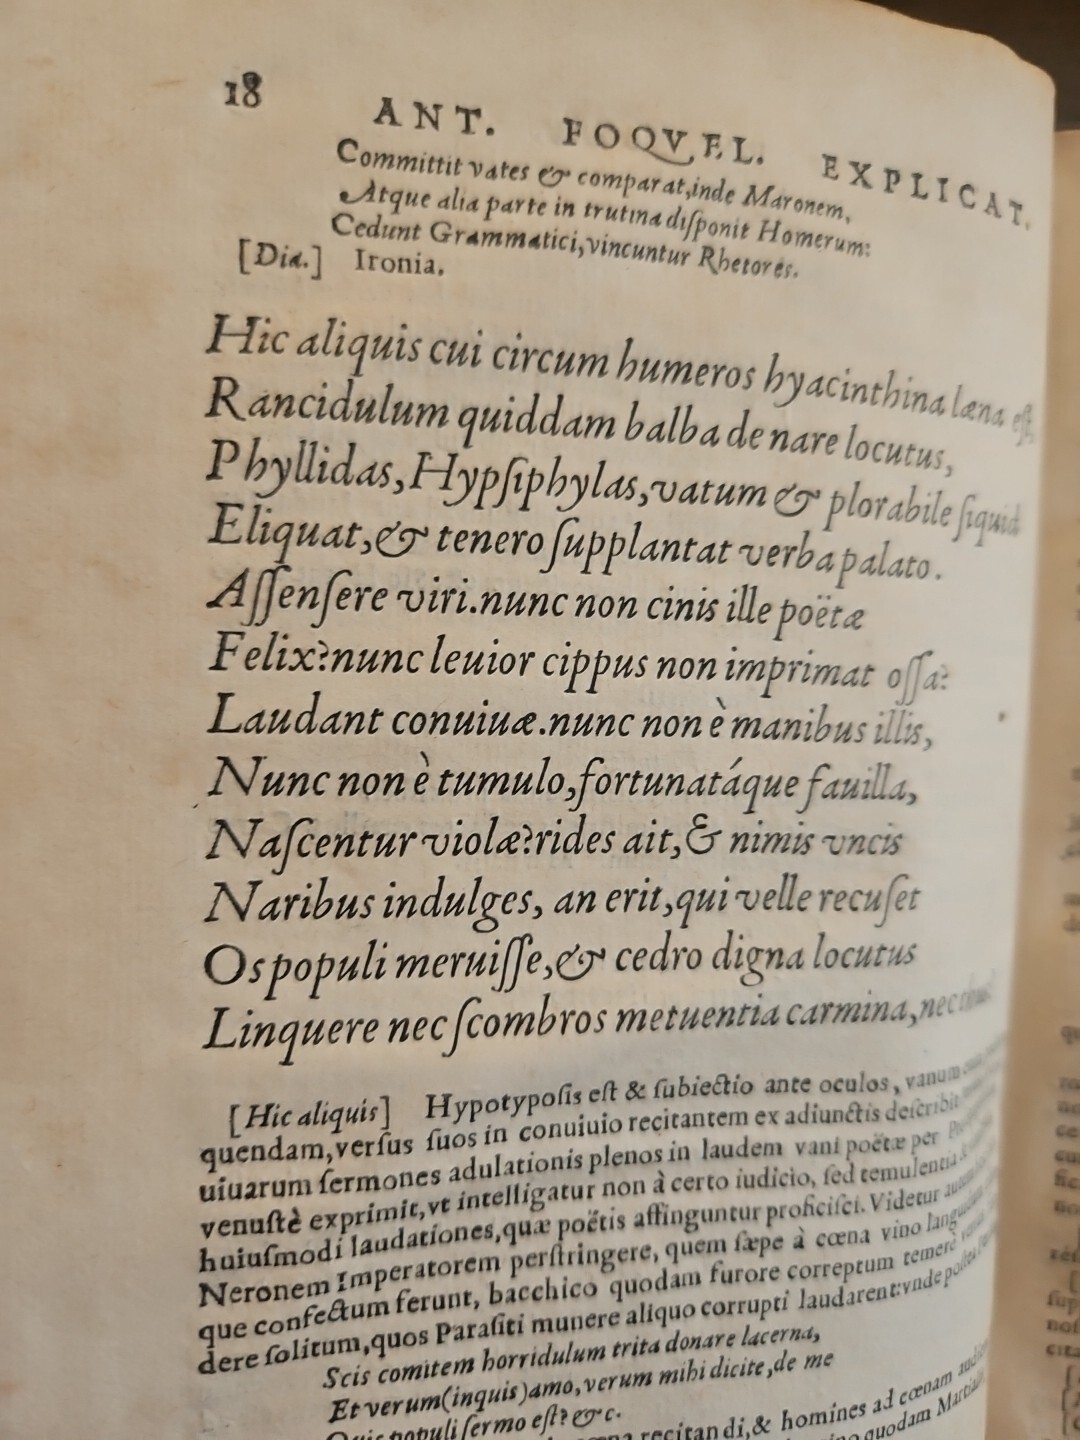 18
ANT. FOQVEL. EXPLICAT.
Committit vates & comparat, inde Maronem,
Atque alia parte in trutina diſponit Homerum:
Cedunt Grammatici, vincuntur Rhetores.
[Dia.] Ironia.
Hic aliquis cui circum humeros hyacinthina læna eſt,
Rancidulum quiddam balba de nare locutus,
Phyllidas, Hypſiphylas, vatum & plorabile ſiquid
Eliquat, & tenero ſupplantat verba palato.
Aſſenſere viri. nunc non cinis ille poëtæ
Felix? nunc leuior cippus non imprimat oſſa?
Laudant conuiuæ. nunc non è manibus illis,
Nunc non è tumulo, fortunatáque fauilla,
Naſcentur violæ? rides ait, & nimis vncis
Naribus indulges, an erit, qui velle recuſet
Os populi meruiſſe, & cedro digna locutus
Linquere nec ſcombros metuentia carmina, nec
[Hic aliquis] Hypotypoſis eſt & ſubiectio ante oculos, vanum
quendam, verſus ſuos in conuiuio recitantem ex adiunctis deſcribit
uiuarum ſermones adulationis plenos in laudem vani poëtæ per
venuſtè exprimit, vt intelligatur non à certo iudicio, ſed temulentia
huiuſmodi laudationes, quæ poëtis affinguntur proficiſci. Videtur autem
Neronem Imperatorem perſtringere, quem ſæpe à cœna vino
que confectum ferunt, bacchico quodam furore correptum temerè
dere ſolitum, quos Paraſiti munere aliquo corrupti laudarent: vnde
Scis comitem horridulum trita donare lacerna,
Et verum (inquis) amo, verum mihi dicite, de me
Quis populi ſermo eſt? &c.
recitandi, & homines ad cœnam
quodam